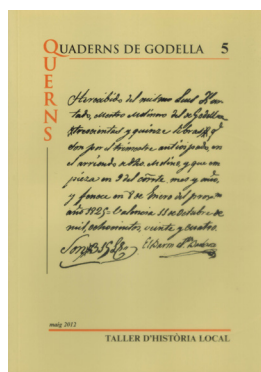 QUADERNS DE GODELLA 5
QUERNS
He recibido del mismo Luis Hur-
tado, Maestro Molinero del de Godella
trescientas y quinze libras, q.
son por el trimestre anticipado, en
el arriendo a dho. Molino, y que em-
pieza en 9 del cor.te mes y año,
y fenece en 8 de Enero del prox.mo
año 1825. Valencia 11 de Octubre de
mil, ochocientos, veinte y cuatro.
Son 315 L
El Baron
maig 2012
TALLER D'HISTÒRIA LOCAL